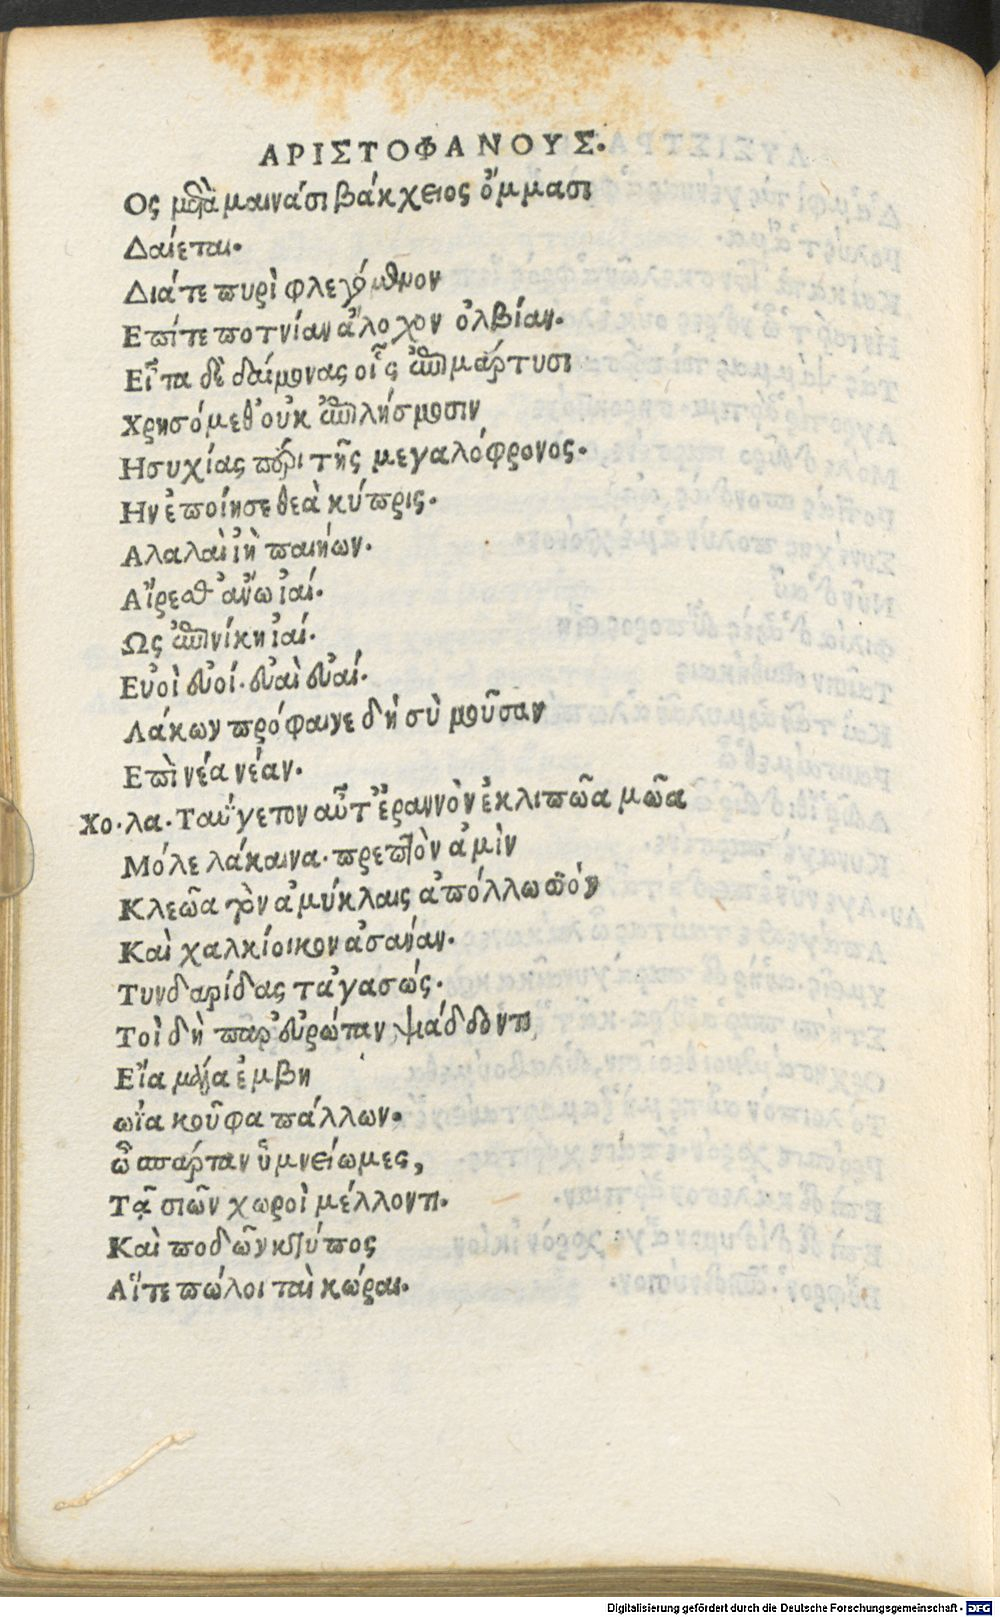 ΑΡΙΣΤΟΦΑΝΟΥΣ.
Ος μετὰ μαινάσι βάκχειος ὄμμασι
Δαίεται.
Διά τε πυρὶ φλεγόμενον
Επί τε ποτνίαν ἄλοχον ὀλβίαν.
Εἶτα δὲ δαίμονας οἷς ἐπιμάρτυσι
Χρησόμεθ' οὐκ ἐπιλήσμοσιν
Ησυχίας πέρι τῆς μεγαλόφρονος.
Ην ἐποίησε θεὰ κύπρις.
Αλαλαὶ ἰὴ παιήων.
Αἴρεσθ' ἄνω ἰαί.
Ως ἐπὶ νίκῃ ἰαί.
Εὐοὶ εὐοί. εὐαὶ εὐαί.
Λάκων πρόφαινε δὴ σὺ μοῦσαν
Επὶ νέα νέαν.
Χο. λα. Ταΰγετον αὖτ' ἔραννὸν ἐκλιπῶα μῶα
Μόλε λάκαινα. πρεπτὸν ἁμὶν
Κλεῶα τὸν ἀμύκλαις ἀπόλλω σιόν
Καὶ χαλκίοικον ἀσανάν.
Τυνδαρίδας τ' ἀγασώς.
Τοὶ δὴ παρ' εὐρώταν ψιάδδοντι,
Εἴα μάλα ἔμβη
ωἴα κοῦφα πάλλων.
ὦ σπάρταν ὑμνείωμες,
Τᾷ σιῶν χωροὶ μέλλοντι.
Καὶ ποδῶν κτύπος
Αἵτε πῶλοι ταὶ κώραι.
Digitalisierung gefördert durch die Deutsche Forschungsgemeinschaft - DFG